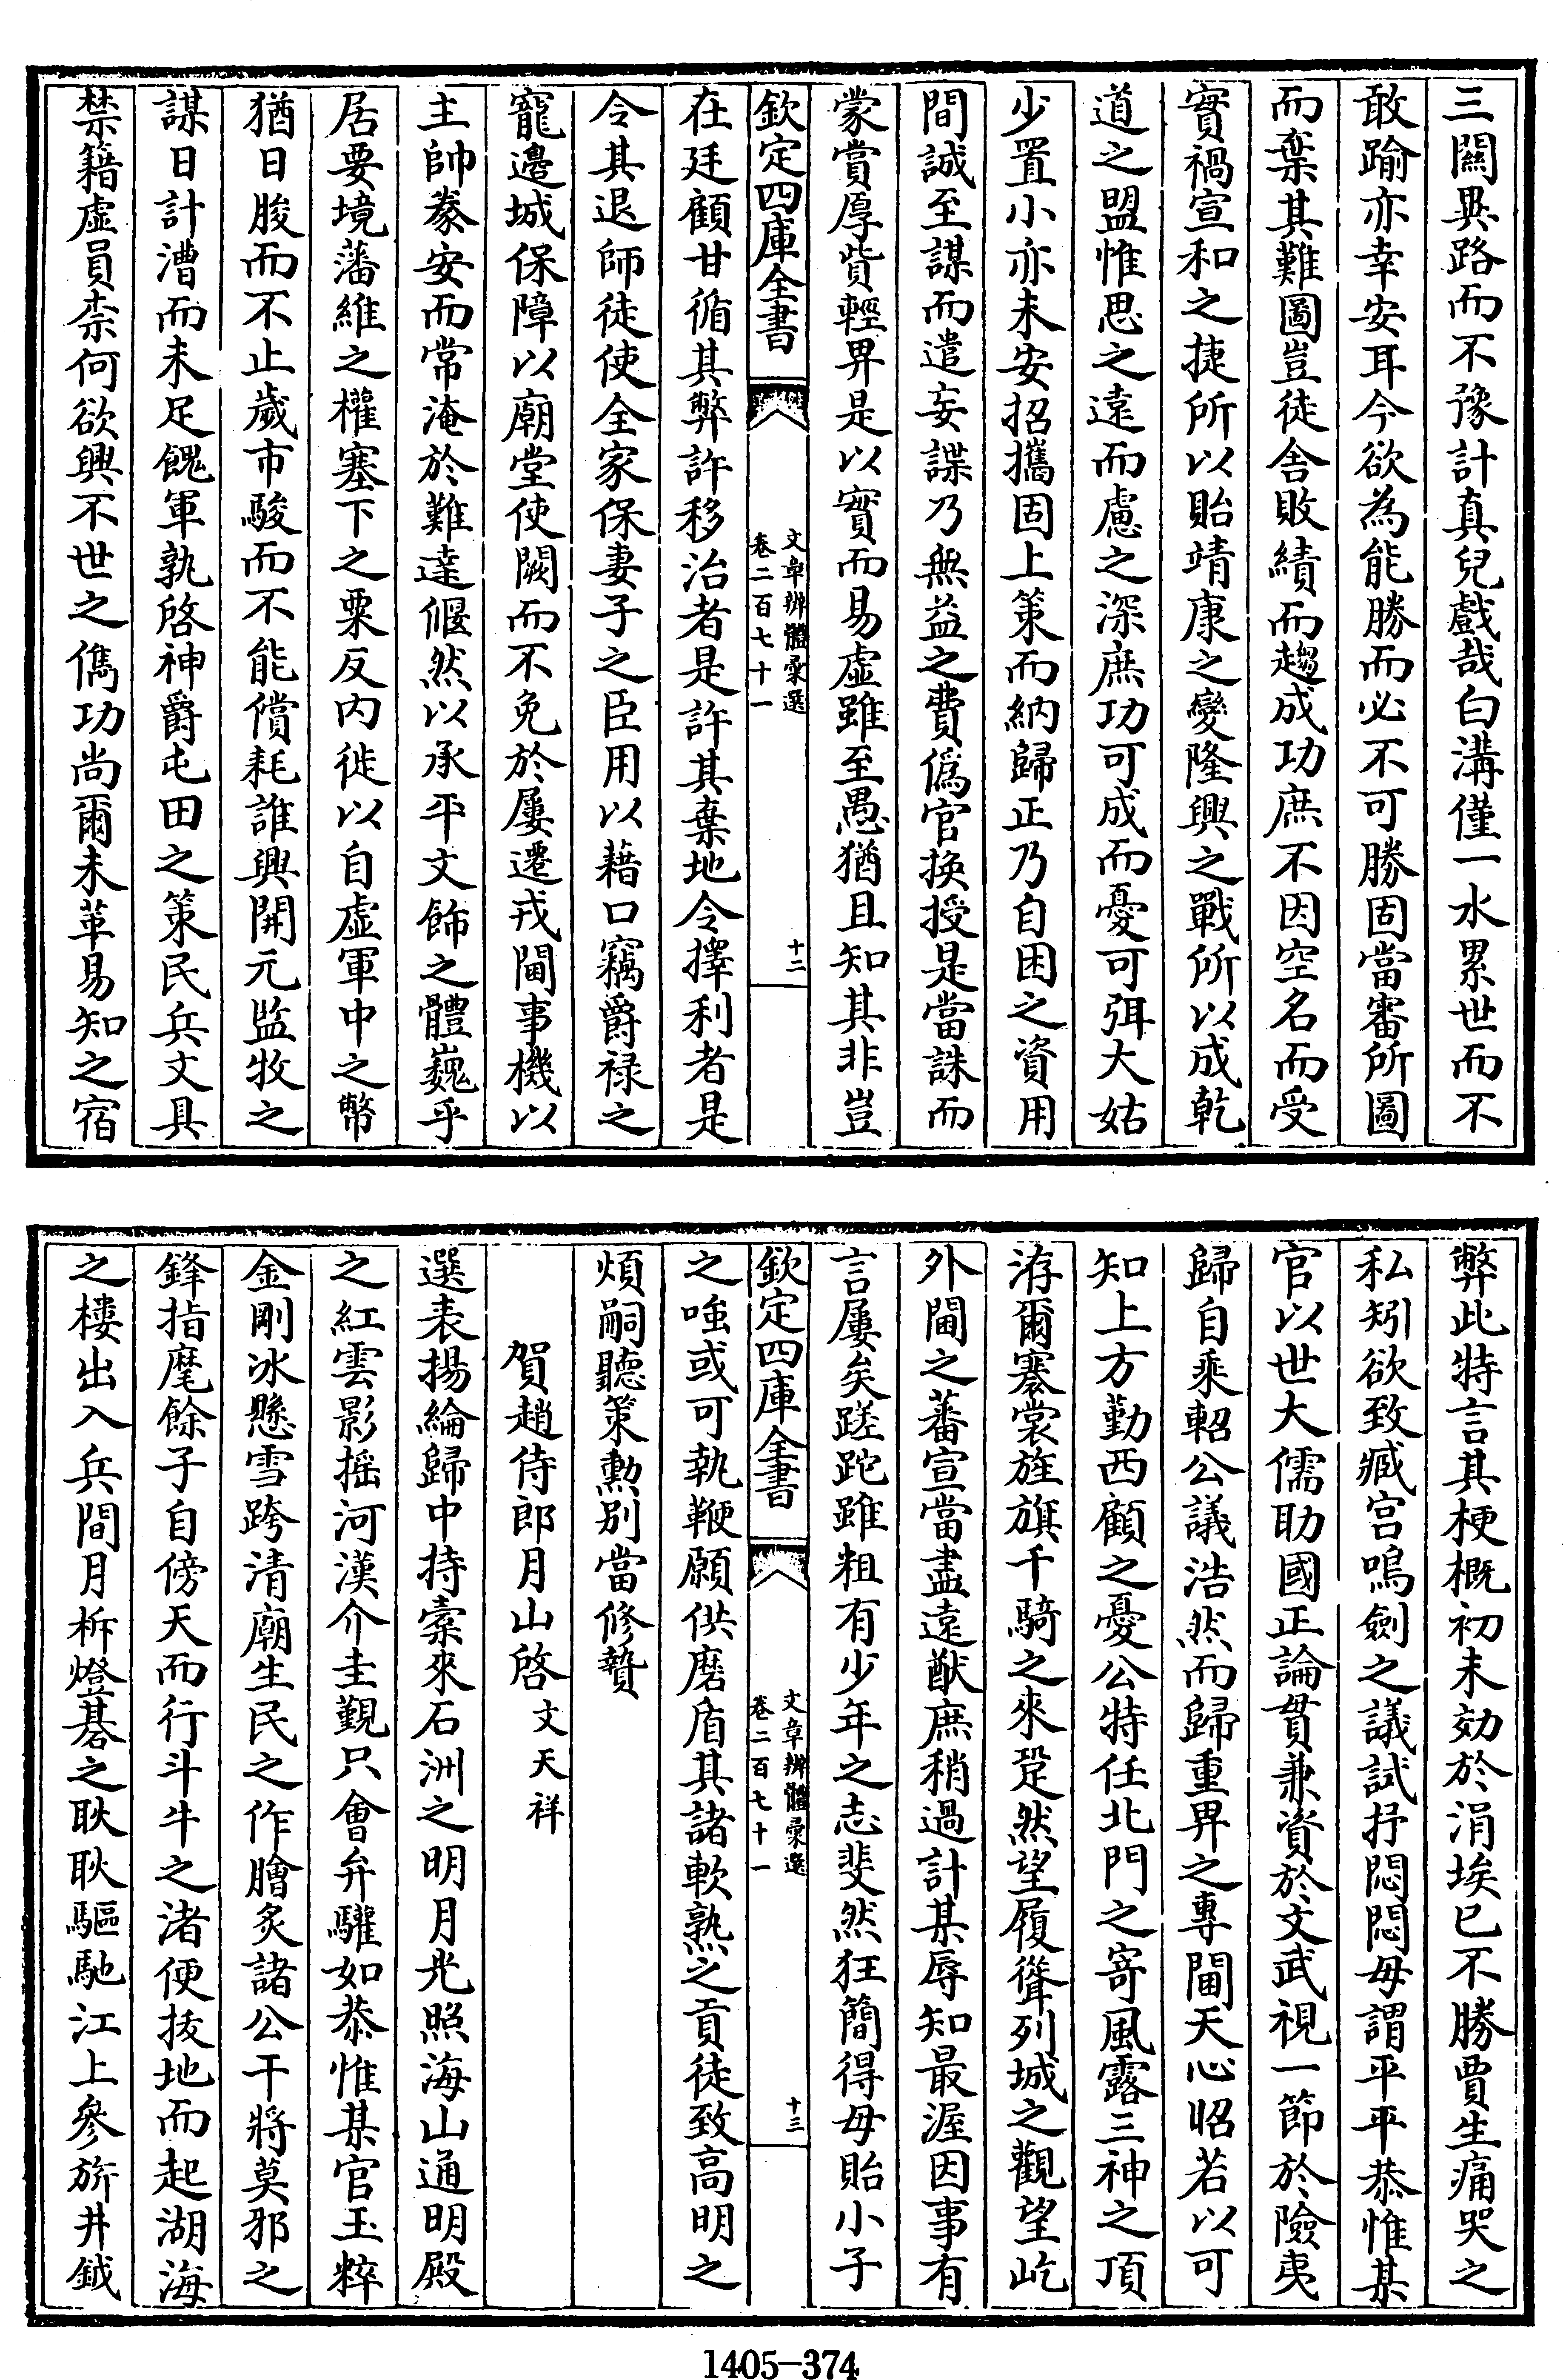 三關異路而不豫計真兒戲哉白溝僅一水累世而不
敢踰亦幸安耳今欲為能勝而必不可勝固當審所圖
而棄其難圖豈徒舍敗績而趨成功庶不因空名而受
實禍宣和之捷所以貽靖康之變隆興之戰所以成乾
道之盟惟思之遠而慮之深庶功可成而憂可弭大姑
少置小亦未安招攜固上策而納歸正乃自困之資用
間誠至謀而遣妄諜乃無益之費偽官換授是當誅而
蒙賞厚貲輕畀是以實而易虛雖至愚猶且知其非豈
欽定四庫全書
文章辨體彙選
卷二百七十一
十二
在廷顧甘循其弊許移治者是許其棄地令擇利者是
令其退師徒使全家保妻子之臣用以藉口竊爵祿之
寵邊城保障以廟堂使闕而不免於屢遷戎閫事機以
主帥豢安而常淹於難達偃然以承平文飾之體巍乎
居要境藩維之權塞下之粟反內徙以自虛軍中之幣
猶日朘而不止歲市駿而不能償耗誰興開元監牧之
謀日計漕而未足餽軍孰啓神爵屯田之策民兵文具
禁籍虛員柰何欲興不世之儁功尚爾未革易知之宿
弊此特言其梗概初未効於涓埃已不勝賈生痛哭之
私矧欲致臧宮鳴劍之議試抒悶悶毋謂平平恭惟某
官以世大儒助國正論貫兼資於文武視一節於險夷
歸自乘軺公議浩然而歸重畀之專閫天心昭若以可
知上方勤西顧之憂公特任北門之寄風露三神之頂
洊爾褰裳旌旗千騎之來跫然望履聳列城之觀望屹
外閫之蕃宣當盡遠猷庶稍過計某辱知最渥因事有
言屢矣蹉跎雖粗有少年之志斐然狂簡得毋貽小子
欽定四庫全書
文章辨體彙選
卷二百七十一
十三
之嗤或可執鞭願供磨盾其諸軟熟之貢徒致高明之
煩嗣聽策勳別當修贄
賀趙侍郎月山啓文天祥
選表揚綸歸中持橐來石洲之明月光照海山通明殿
之紅雲影搖河漢介圭觀只會弁驩如恭惟某官玉粹
金剛冰懸雪跨清廟生民之作膾炙諸公干將莫邪之
鋒指麾餘子自傍天而行斗牛之渚便拔地而起湖海
之樓出入兵間月柝燈碁之耿耿驅馳江上參旂井鉞
1405-374